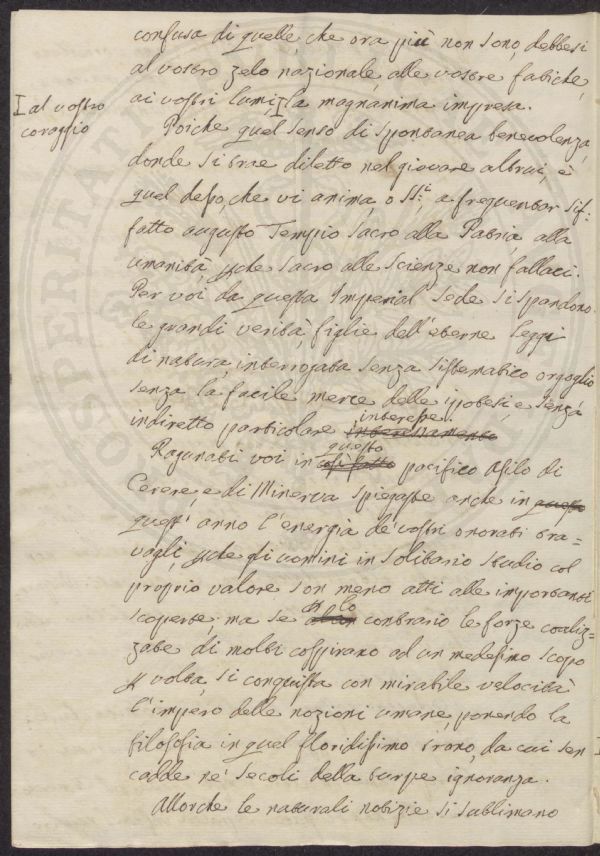 confusa di quelle, che ora più non sono, debbesi
al vostro zelo nazionale, alle vostre fatiche,
ai vostri lumi, la magnanima impresa.
al vostro
coraggio
Poiche quel senso di spontanea benevolenza,
donde si trae diletto nel giovare altrui, è
quel desso, che vi anima, o SS.ri a frequentar sif=
fatto augusto Tempio sacro alla Patria, alla
umanità, pche sacro alle scienze non fallaci.
Per voi da questa Imperial sede si spandono
le grandi verità, figlie dell'eterne leggi
di natura, interrogata senza sistematico orgoglio
senza la facile merce delle ipotesi e senza
interesse.
indiretto particolare interessamento
questo
Ragunati voi in così fatto pacifico Asilo di
Cerere, e di Minerva spiegaste anche in questo
quest'anno l'energia de' vostri onorati tra=
vagli, pche gli uomini in solitario studio col
proprio valore son meno atti alle importanti
lo
scoperte; ma se al contrario le forze coaliz=
zate di molti cospirano ad un medesimo scopo
p volta, si conquista con mirabile velocità
l'impero delle nozioni umane, ponendo la
filosofia in quel floridissimo trono, da cui sen
cadde ne' secoli della turpe ignoranza.
Allorche le naturali notizie si sublimano